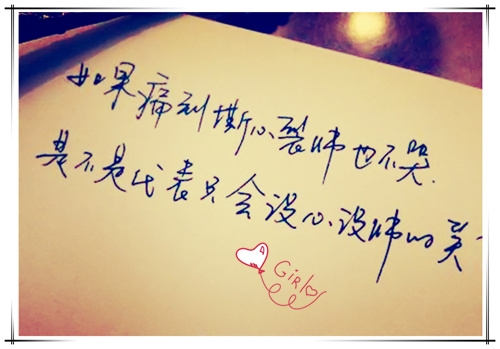 如果痛到撕心裂肺也不哭.
是不是代表只会没心没肺的笑
GiRL